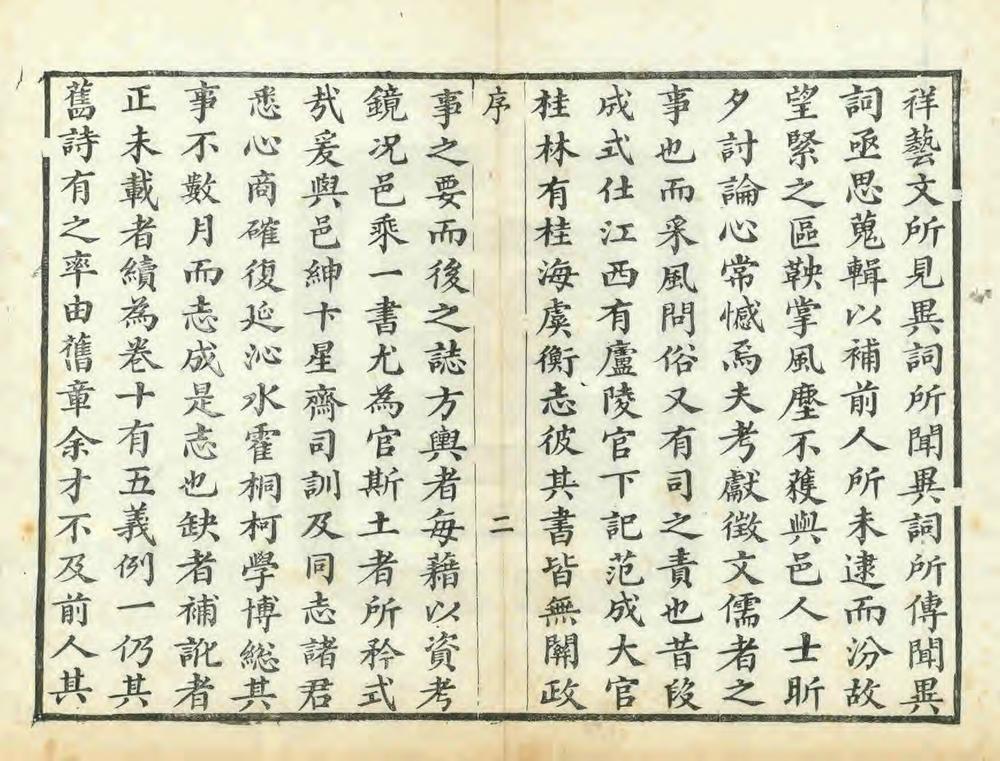 祥藝文所見異詞所聞異詞所傳聞異
詞亟思蒐輯以補前人所未逮而汾故
望緊之區鞅掌風塵不獲與邑人士昕
夕討論心常憾焉夫考獻徵文儒者之
事也而采風問俗又有司之責也昔段
成式仕江西有廬陵官下記范成大官
桂林有桂海虞衡志彼其書皆無關政
序 二
事之要而後之誌方輿者每藉以資考
鏡况邑乘一書尤為官斯土者所矜式
㢤爰與邑紳卞星齋司訓及同志諸君
悉心商確復延沁水霍桐柯學博總其
事不數月而志成是志也缺者補訛者
正未載者續為卷十有五義例一仍其
舊詩有之率由舊章余才不及前人其